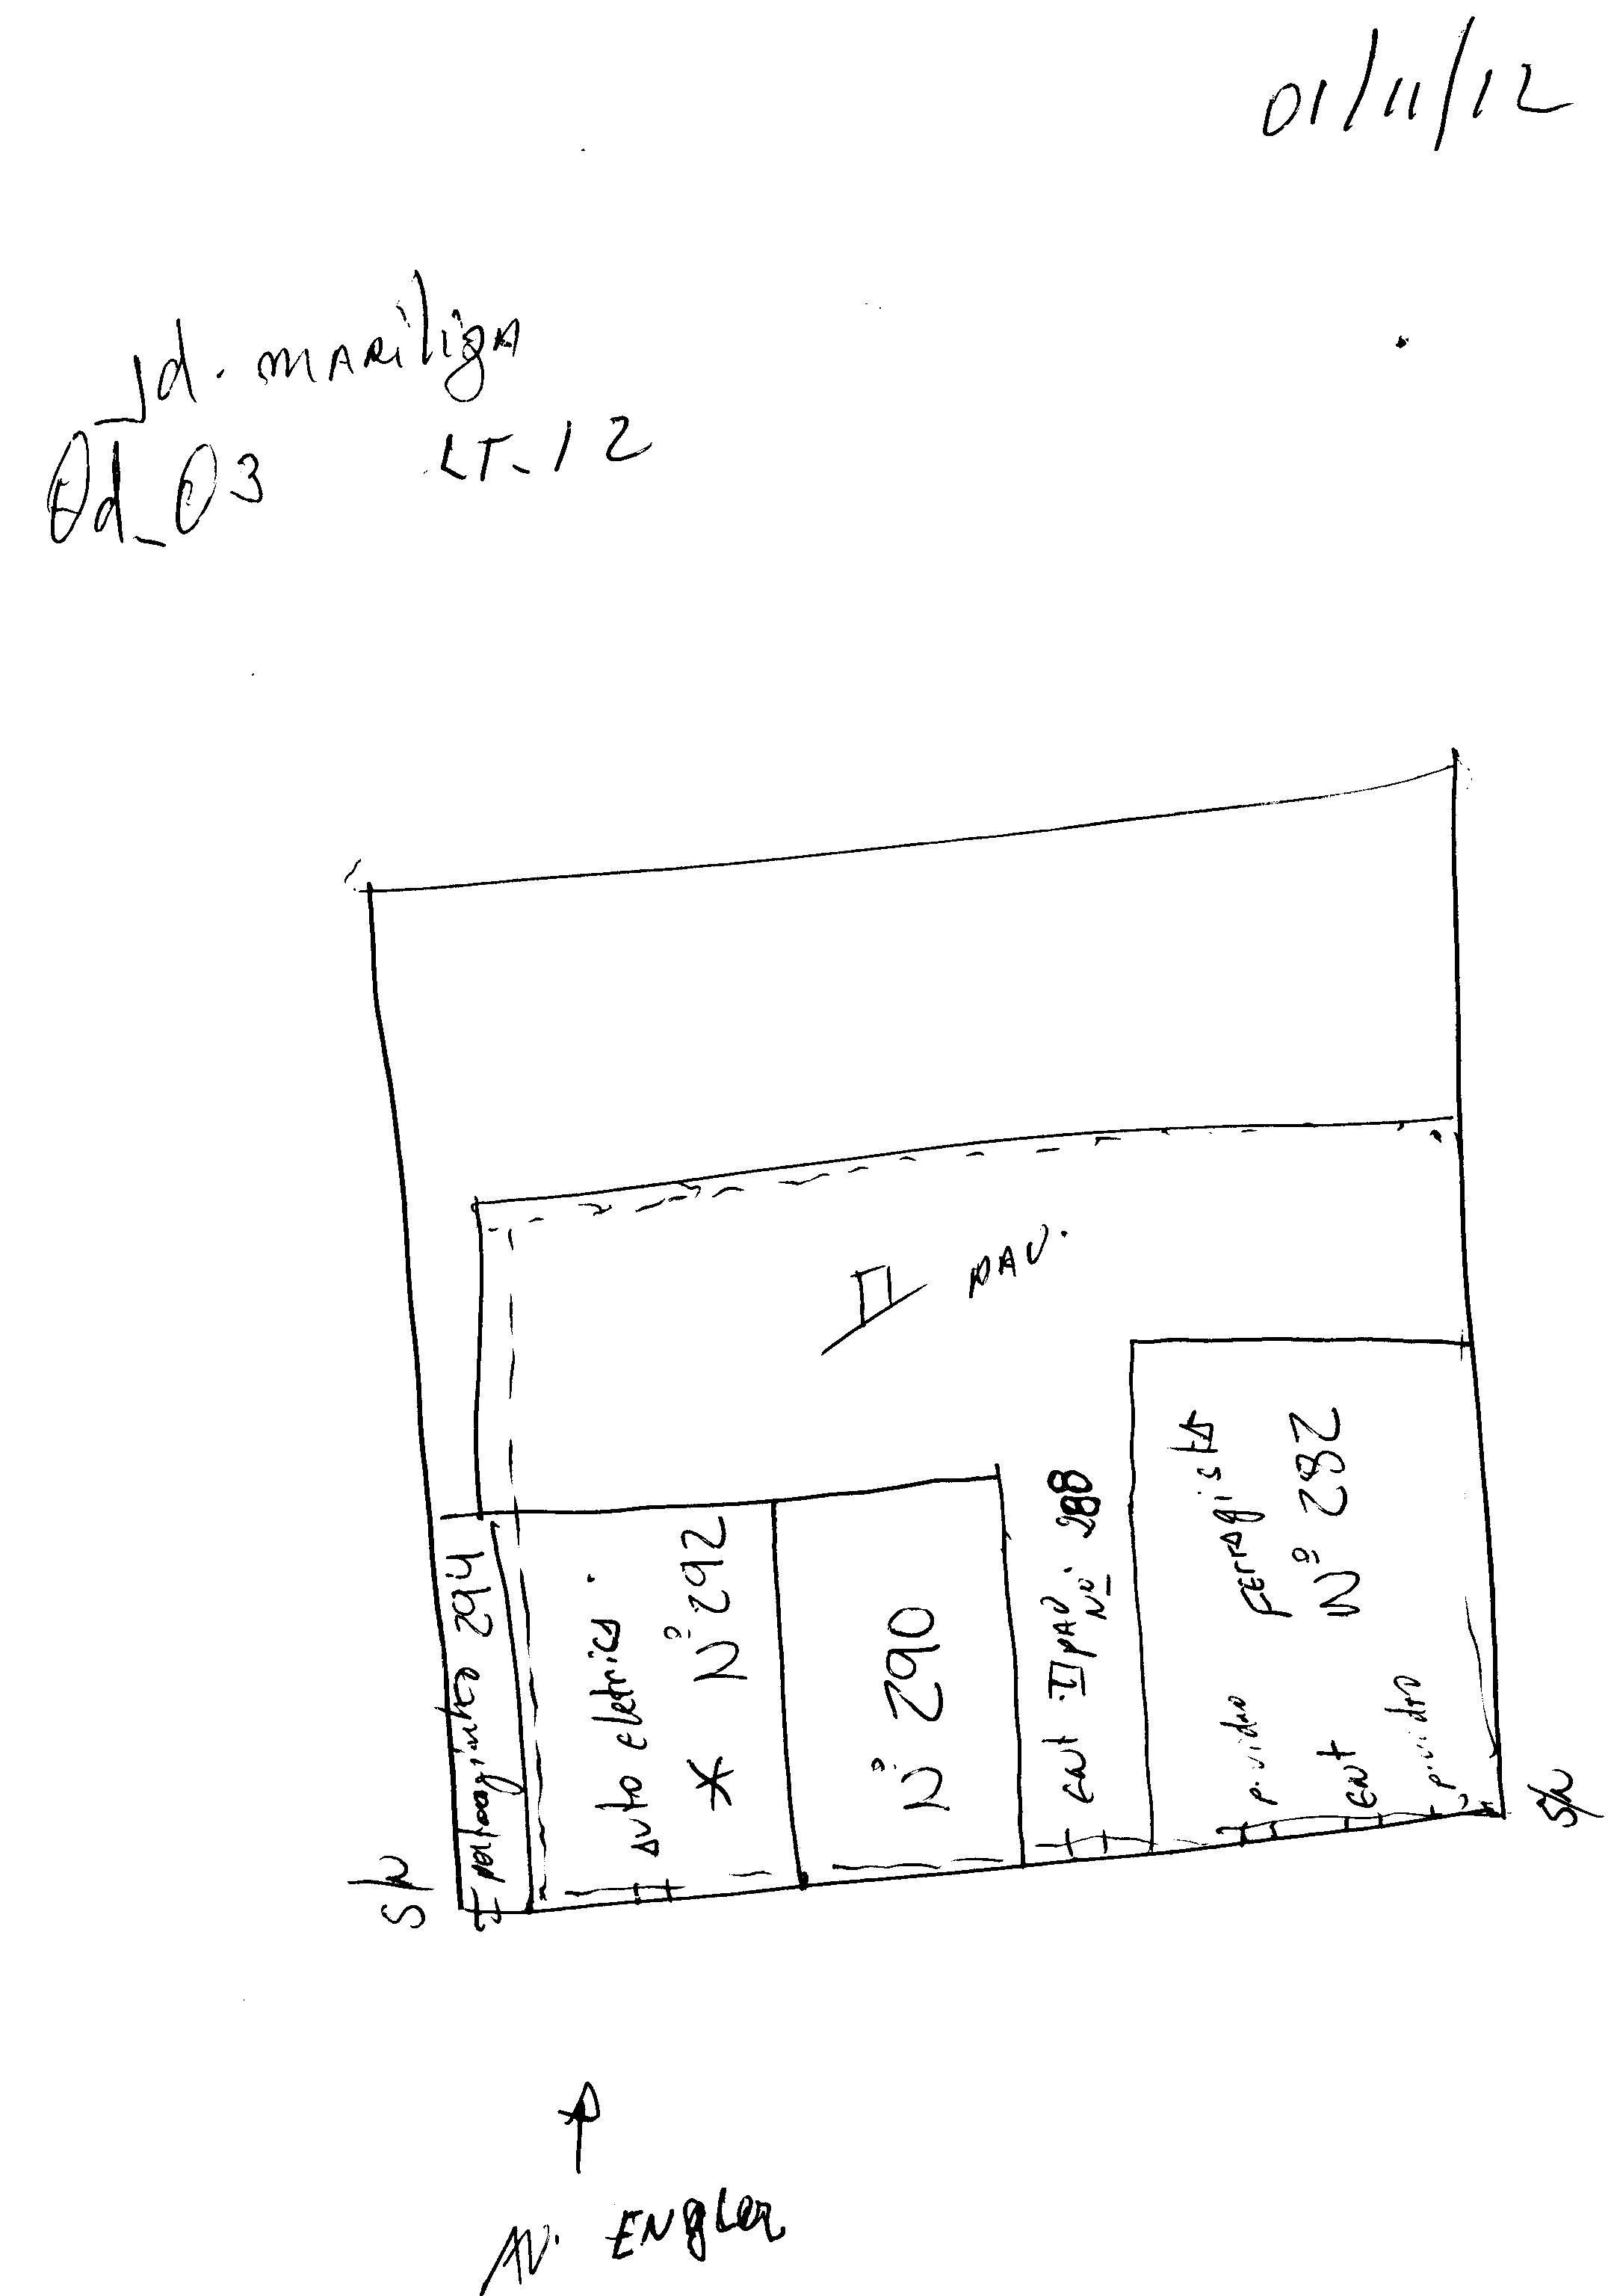 01/11/12
Jd. MARiliZA
Qd_03 LT_12
II PAV.
portaozinho 294
Auto eletrica.
* Nº 292
Nº 290
ENt II PAV
Nº. 288
Ferragista
Nº 282
p. vidro
ENt
p. vidro
S/N
S/N
AV. ENgLER